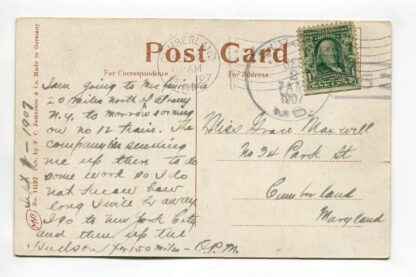 Post Card
For Correspondence
For Address
No. 14192 Pub. by F. C. Jameson & Co. Made in Germany
1907
I am going to
20 miles north of
N.Y. to morrow morning
on no 12 train. The
company is sending
me up then to do
some work so I do
not know how
long I will be away
I go to new York City
and then up the
Hudson for 150 miles - O.P.M.
CUMBERLAND
MD.
7 AM
1907
Miss Grace Maxwell
No 34 Park St
Cumberland
Maryland